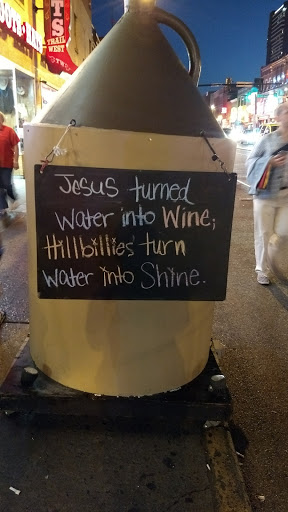 TS
TRAIL
WEST
Jesus turned
water into Wine;
Hillbillies turn
water into Shine.